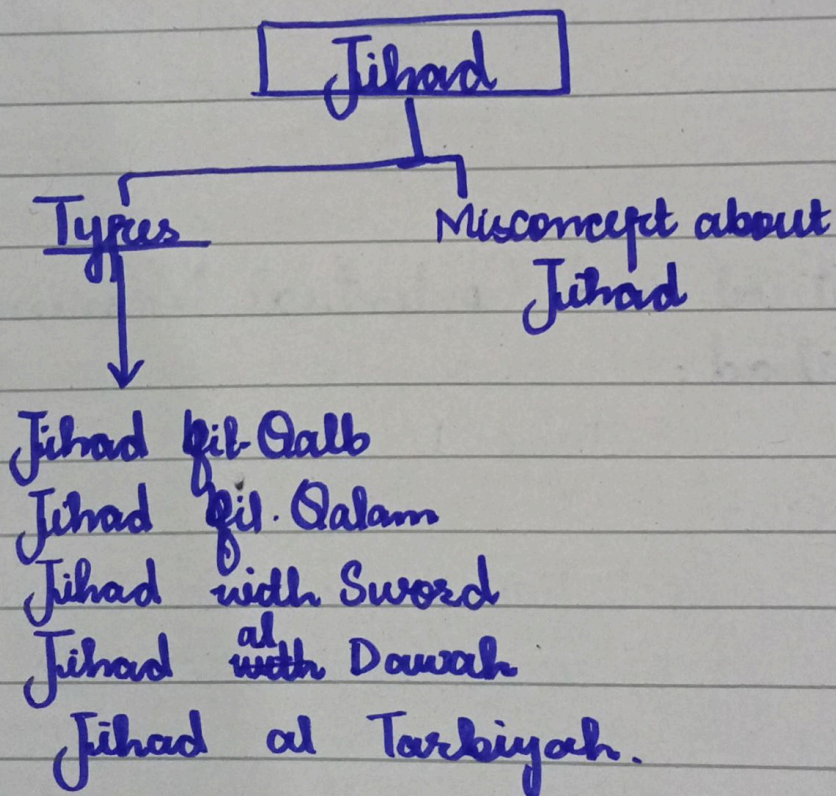 Jihad
Types
Misconcept about
Jihad
Jihad fil-Qalb
Jihad fil-Qalam
Jihad with Sword
Jihad al Dawah
Jihad al Tarbiyah.